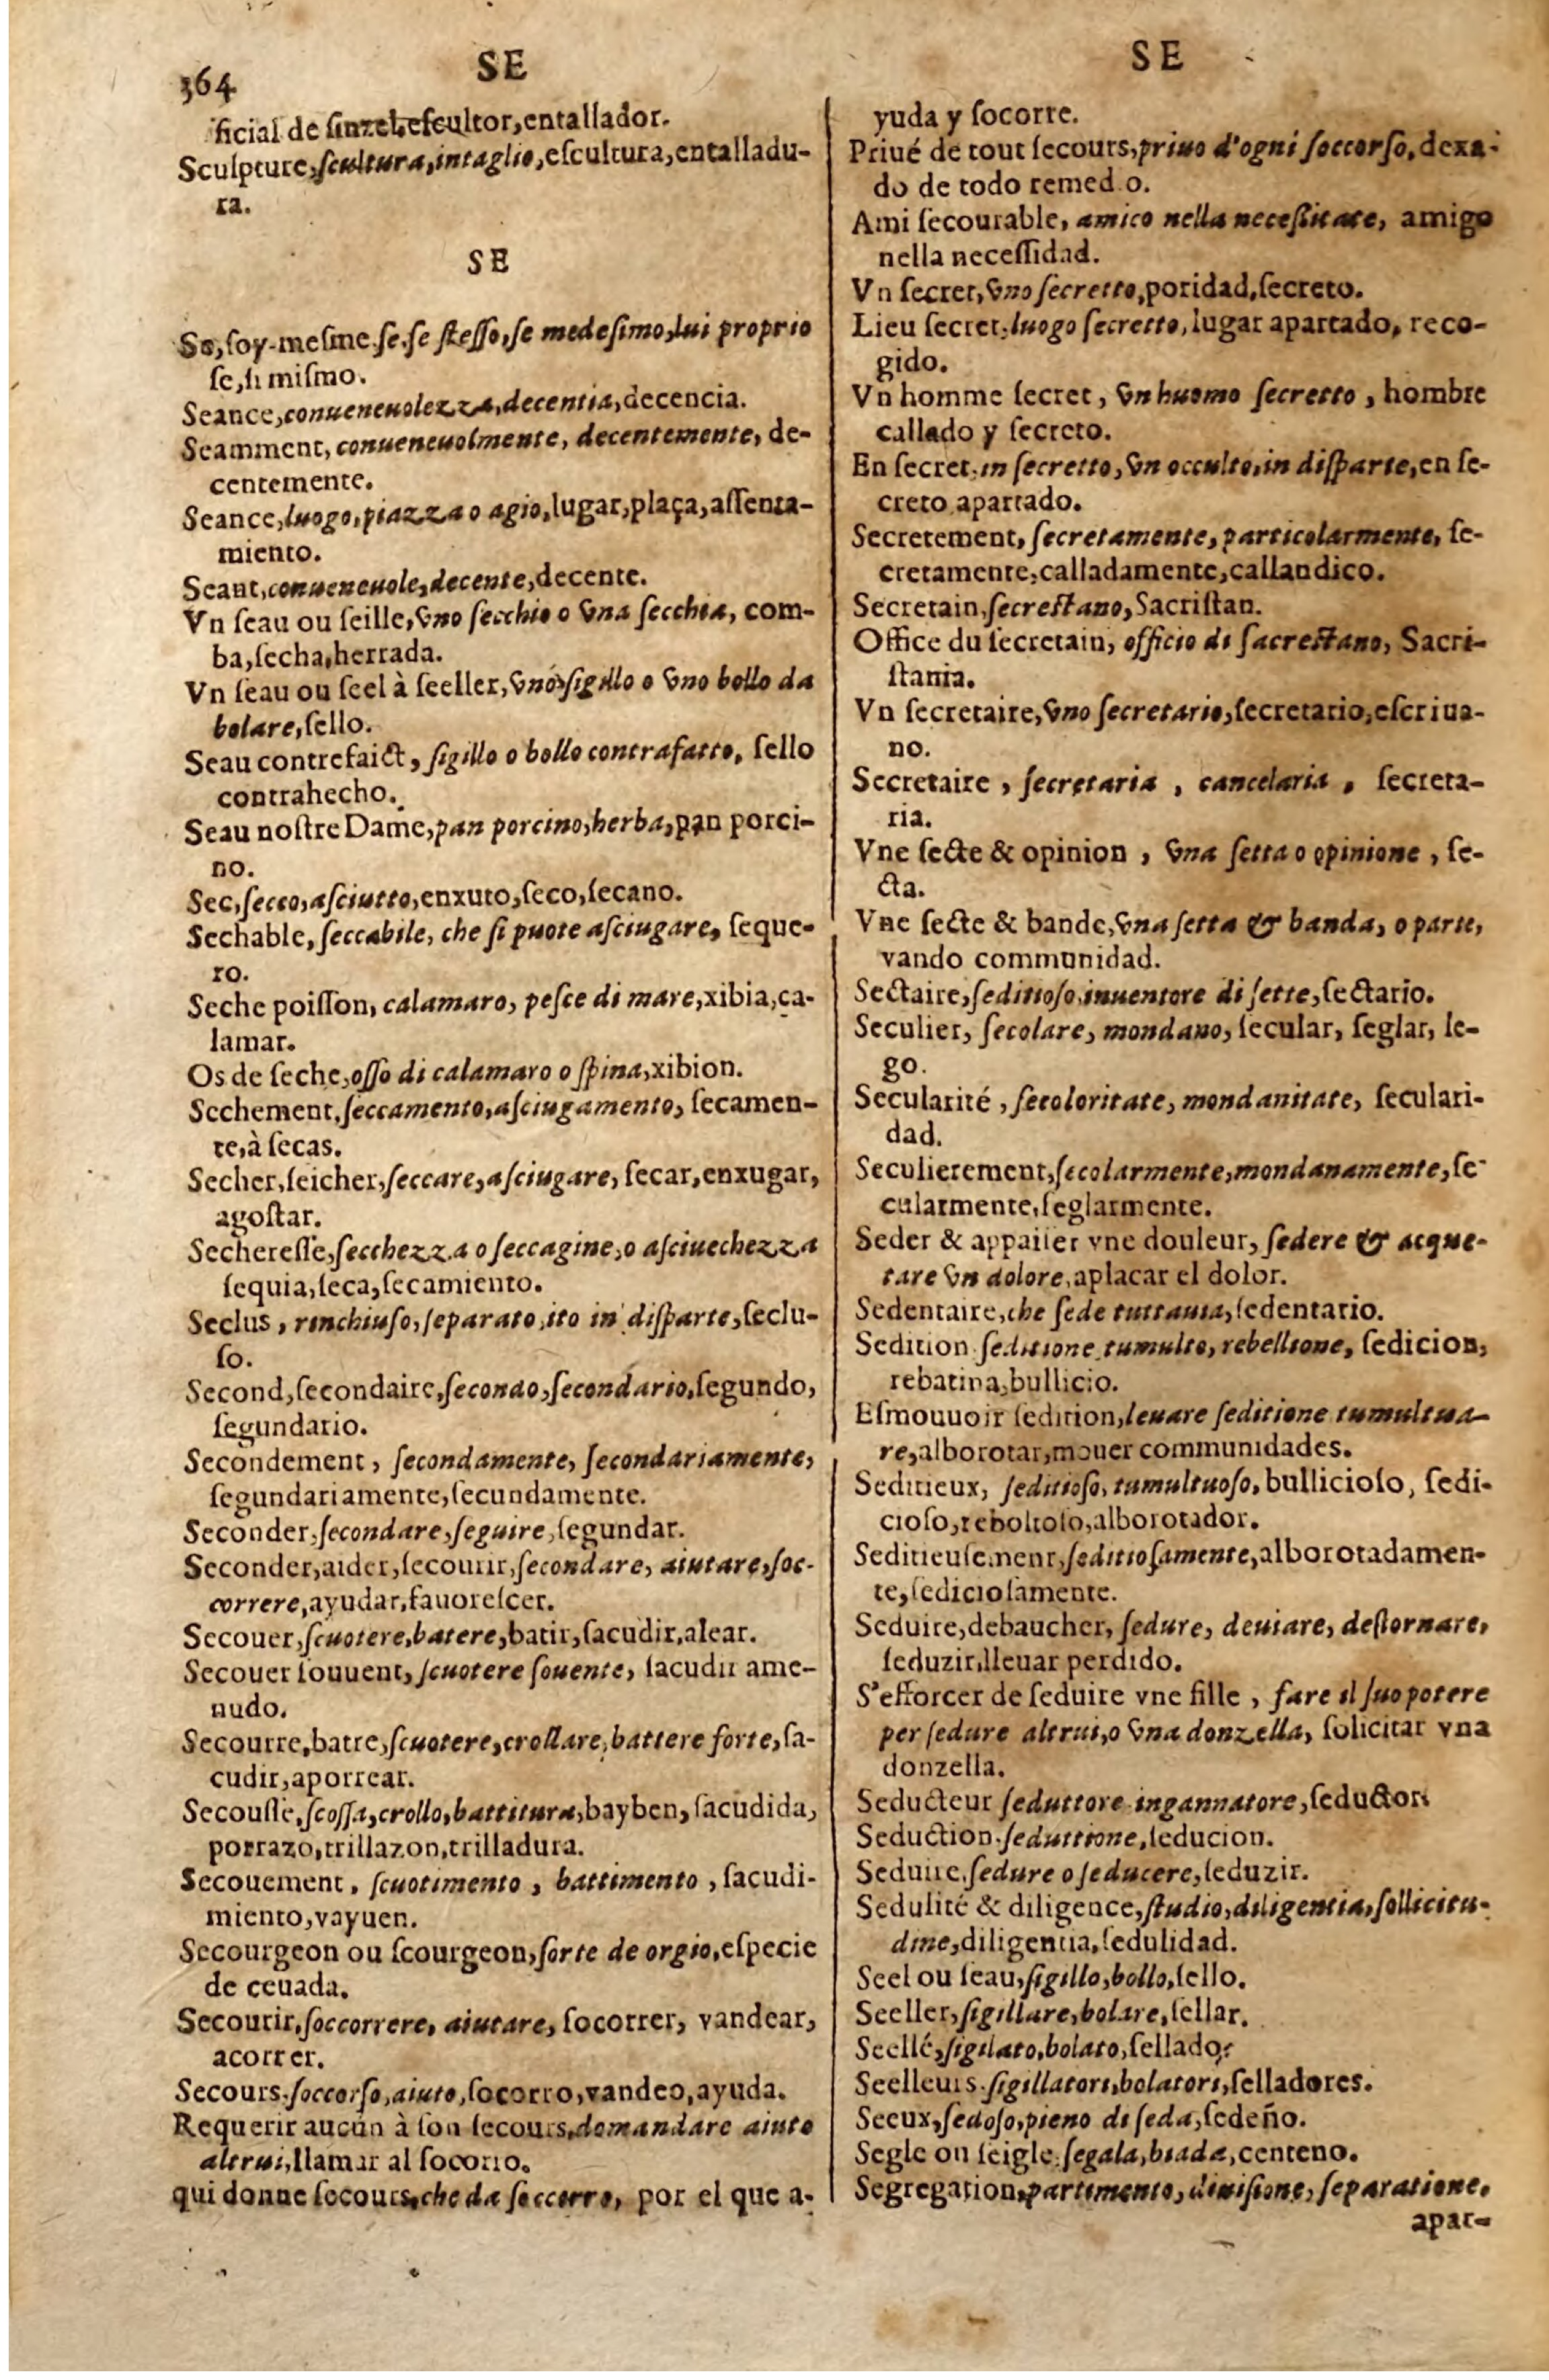 364
SE
ficial de sinzel, escultor, entallador.
Sculpture, scultura, intaglio, escultura, entalladu-
ra.
SE
Se, soy-mesme. se, se stesso, se medesimo, lui proprio
se, si mismo.
Seance, conueneuolezza, decentia, decencia.
Seamment, conueneuolmente, decentemente, de-
centemente.
Seance, luogo, piazza o agio, lugar, plaça, assenta-
miento.
Seant, conueneuole, decente, decente.
Vn seau ou seille, vno secchio o vna secchia, com-
ba, secha, herrada.
Vn seau ou seel à seeller, vno sigillo o vno bollo da
bolare, sello.
Seau contrefaict, sigillo o bollo contrafatto, sello
contrahecho.
Seau nostre Dame, pan porcino, herba, pan porci-
no.
Sec, secco, asciutto, enxuto, seco, secano.
Sechable, seccabile, che si puote asciugare, seque-
ro.
Seche poisson, calamaro, pesce di mare, xibia, ca-
lamar.
Os de seche, osso di calamaro o spina, xibion.
Sechement, seccamento, asciugamento, secamen-
te, à secas.
Secher, seicher, seccare, asciugare, secar, enxugar,
agostar.
Secheresse, secchezza o seccagine, o asciuechezza
sequia, seca, secamiento.
Seclus, rinchiuso, separato, ito in disparte, seclu-
so.
Second, secondaire, secondo, secondario, segundo,
segundario.
Secondement, secondamente, secondariamente,
segundariamente, secundamente.
Seconder, secondare, seguire, segundar.
Seconder, aider, secourir, secondare, aiutare, soc-
correre, ayudar, fauorescer.
Secouer, scuotere, batere, batir, sacudir, alear.
Secouer souuent, scuotere souente, sacudir ame-
nudo.
Secourre, batre, scuotere, crollare, battere forte, sa-
cudir, aporrear.
Secousse, scossa, crollo, battitura, bayben, sacudida,
porrazo, trillazon, trilladura.
Secouement, scuotimento, battimento, sacudi-
miento, vayuen.
Secourgeon ou scourgeon, sorte de orgio, especie
de ceuada.
Secourir, soccorrere, aiutare, socorrer, vandear,
acorrer.
Secours. soccorso, aiuto, socorro, vandeo, ayuda.
Requerir aucun à son secours, domandare aiuto
altrui, llamar al socorro.
qui donne secours, che da soccorro, por el que a-
SE
yuda y socorre.
Priué de tout secours, priuo d'ogni soccorso, dexa-
do de todo remed o.
Ami secourable, amico nella necessitate, amigo
nella necessidad.
Vn secret, vno secretto, poridad, secreto.
Lieu secret, luogo secretto, lugar apartado, reco-
gido.
Vn homme secret, vn huomo secretto, hombre
callado y secreto.
En secret, in secretto, vn occulto, in disparte, en se-
creto apartado.
Secretement, secretamente, particolarmente, se-
cretamente, calladamente, callandico.
Secretain, secrestano, Sacristan.
Office du secretain, officio di sacrestano, Sacri-
stania.
Vn secretaire, vno secretario, secretario, escriua-
no.
Secretaire, secretaria, cancelaria, secreta-
ria.
Vne secte & opinion, vna setta o opinione, se-
cta.
Vne secte & bande, vna setta & banda, o parte,
vando communidad.
Sectaire, seditioso, inuentore di sette, sectario.
Seculier, secolare, mondano, secular, seglar, le-
go.
Secularité, secoloritate, mondanitate, seculari-
dad.
Seculierement, secolarmente, mondanamente, se-
cularmente, seglarmente.
Seder & appaiser vne douleur, sedere & acque-
tare vn dolore, aplacar el dolor.
Sedentaire, che sede tuttauia, sedentario.
Sedition. seditione, tumulto, rebellione, sedicion,
rebatina, bullicio.
Esmouuoir sedition, leuare seditione tumultua-
re, alborotar, mouer communidades.
Seditieux, seditioso, tumultuoso, bullicioso, sedi-
cioso, reboltoso, alborotador.
Seditieusement, seditiosamente, alborotadamen-
te, sediciosamente.
Seduire, debaucher, sedure, deuiare, destornare,
seduzir, lleuar perdido.
S'efforcer de seduire vne fille, fare il suo potere
per sedure altrui, o vna donzella, solicitar vna
donzella.
Seducteur seduttore ingannatore, seductor.
Seduction. seduttione, seducion.
Seduire, sedure o seducere, seduzir.
Sedulité & diligence, studio, diligentia, sollicitu-
dine, diligentia, sedulidad.
Seel ou seau, sigillo, bollo, sello.
Seeller, sigillare, bolare, sellar.
Seellé, sigilato, bolato, sellado,
Seelleurs. sigillatori, bolatori, selladores.
Seeux, sedoso, pieno di seda, sedeño.
Segle ou seigle, segala, biada, centeno.
Segregation, partimento, diuisione, separatione,
apar-